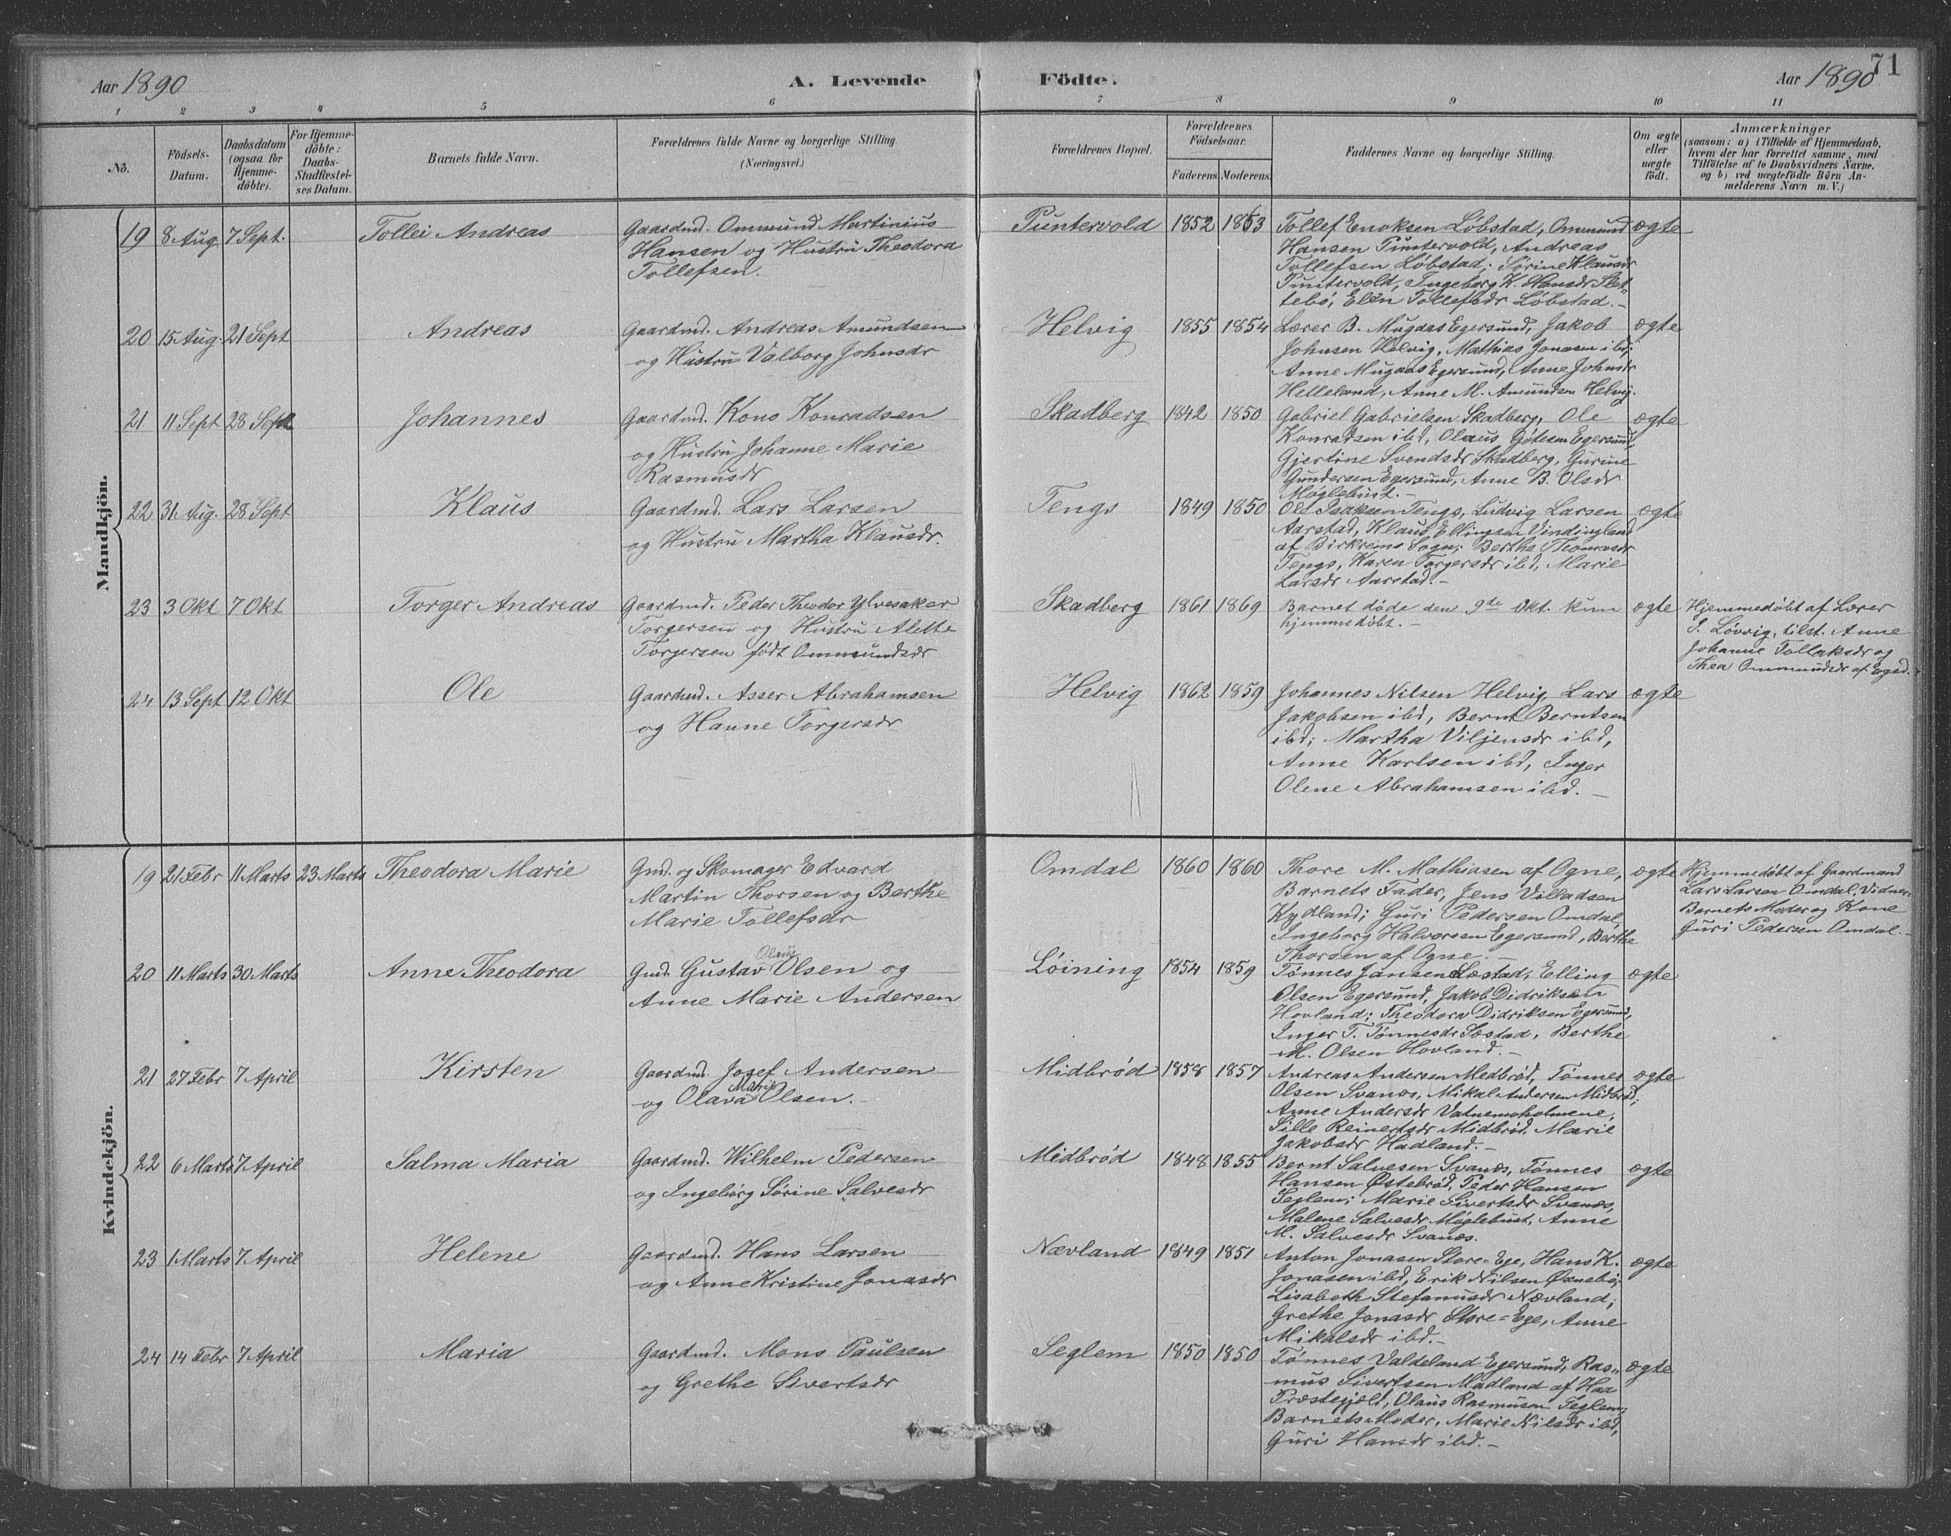 71
Aar 1890 A. Levende Födte. Aar 1890
1 2 3 4 5 6 7 8 9 10 11
No.
Födsels-
Datum.
Daabsdatum
(ogsaa for
Hjemme-
döbte).
For Hjemme-
döbte:
Daabs-
Stadfæstel-
ses Datum.
Barnets fulde Navn.
Forældrenes fulde Navne og borgerlige Stilling
(Næringsvei.)
Forældrenes Bopæl.
Forældrenes
Födselsaar.
Faderens Moderens
Faddernes Navne og borgerlige Stilling.
Om ægte
eller
uægte
født.
Anmærkninger
(saasom: a) i Tilfælde af Hjemmedaab,
hvem der har forrettet samme, med
Tilföielse af to Daabsvidners Navne.
og b) ved uægtefödte Börn An-
melderens Navn m. V.)
Mandkjön.
19 8 Aug. 7 Sept. Tollef Andreas
Gaardmd. Ommund Martinius
Hansen og Hustru Theodora
Tollefsen.
Puntervold 1852 1863
Tollef Enoksen Løbstad, Ommund
Hansen Puntervold, Andreas
Tollefsen Løbstad; Sørine Klausdr
Puntervold, Ingeborg K. Hansdr Slet-
tebö, Elen Tollefsdr Løbstad.-
ægte
20 15 Aug. 21 Sept Andreas
Gaardmd. Andreas Amundsen
og Hustru Valborg Johnsdr
Helvig 1855 1854
Lærer B. Mugaas Egersund, Jakob
Johnsen Helvig, Mathias Jonasen ibd;
Anne Mugaas Egersund, Anne Johnsdr
Helleland, Anne M. Amundsen Helvig.
ægte
21 11 Sept 28 Sept Johannes
Gaardmd. Kons Konradsen
og Hustru Johanne Marie
Rasmusdr
Skadberg 1842 1850
Gabriel Gabrielsen Skadberg, Ole
Konradsen ibd, Olaus Gjøtesen Egersund,
Gjertine Svendsdr Skadberg, Gurine
Gundersen Egersund, Anne B. Olsdr
Møglebust.-
ægte
22 31 Aug. 28 Sept Klaus
Gaardmd. Lars Larsen
og Hustru Martha Klausdr.
Tengs 1849 1850
Ole Isaksen Tengs, Ludvig Larsen
Aarstad, Klaus Ellingsen Vindingland
af Birkrems Sogn; Berthe Thomasdr
Tengs, Karen Torgersdr ibd, Marie
Larsdr Aarstad.-
ægte
23 3 Okt 7 Okt Torger Andreas
Gaardmd. Peder Theodor Ylvesaker
Torgersen og Hustru Alette
Torgersen født Ommundsdr
Skadberg 1861 1869
Barnet døde den 9de Okt. kun
hjemmedøbt.-
ægte
Hjemmedøbt af Lærer
I. Løvvig, tilst. Anne
Johanne Tollaksdr og
Thea Ommundsdr af Egsd.
24 13 Sept 12 Okt Ole
Gaardmd. Asser Abrahamsen
og Hanne Torgersdr
Helvig 1862 1859
Johannes Nilsen Helvig, Lars
Jakobsen ibd, Bernt Berntsen
ibd; Martha Viljensdr ibd,
Anne Karlsen ibd, Inger
Olene Abrahamsen ibd.-
ægte
Kvindekjön.
19 21 Febr 11 Marts 23 Marts Theodora Marie
Gmd. og Skomager Edvard
Martin Thorsen og Berthe
Marie Tollefsdr
Omdal 1860 1860
Thore M. Mathiasen af Ogne,
Barnets Fader, Jens Villadsen
Kydland; Guri Pedersen Omdal,
Ingeborg Halvorsen Egersund, Berthe
Thorsen af Ogne.-
ægte
Hjemmedøbt af Gaardmand
Lars Larsen Omdal, Vidner:
Barnets Moder og Kone
Guri Pedersen Omdal.-
20 11 Marts 30 Marts Anne Theodora
Olaus
Gmd. Gustav Olsen og
Anne Marie Andersen
Løining 1854 1859
Tønnes Jansen Sæstad, Elling
Olsen Egersund, Jakob Didriksen
Hovland; Theodora Didriksen Egersund,
Inger T. Tønnesdr Sæstad, Berthe
M. Olsen Hovland.-
ægte
21 27 Febr 7 April Kirsten
Gaardmd. Josef Andersen
Marie
og Olava Olsen.-
Midbrød 1858 1857
Andreas Andersen Medbrød, Tønnes
Olsen Svanæs, Mikal Andersen Midbrød;
Anne Andersdr Vatnemoholmene,
Sille Reinertsdr Midbrød, Marie
Jakobsdr Hadland.-
ægte
22 6 Marts 7 April Salma Maria
Gaardmd. Wilhelm Pedersen
og Ingeborg Sørine Salvesdr
Midbrød 1848 1855
Bernt Salvesen Svanæs, Tønnes
Hansen Østebrød, Peder Hansen
Seglem; Marie Sivertsdr Svanæs,
Malene Salvesdr Møglebust, Anne
M. Salvesdr Svanæs.
ægte
23 1 Marts 7 April Helene
Gaardmd. Hans Larsen
og Anne Kristine Jonasdr
Nævland 1849 1851
Anton Jonasen Store-Ege, Hans K.
Jonasen ibd, Erik Nilsen Øxnebø;
Lisabeth Stefanusdr Nævland;
Grethe Jonasdr Store-Ege, Anne
Mikalsdr ibd.-
ægte
24 14 Febr 7 April Maria
Gaardmd. Mons Paulsen
og Grethe Sivertsdr
Seglem 1850 1850
Tønnes Valteland Egersund, Ras-
mus Sivertsen Madland af Haa
Præstegjæld, Olaus Rasmusen Seglem;
Barnets Moder, Marie Nilsdr ibd,
Guri Hansdr ibd.-
ægte